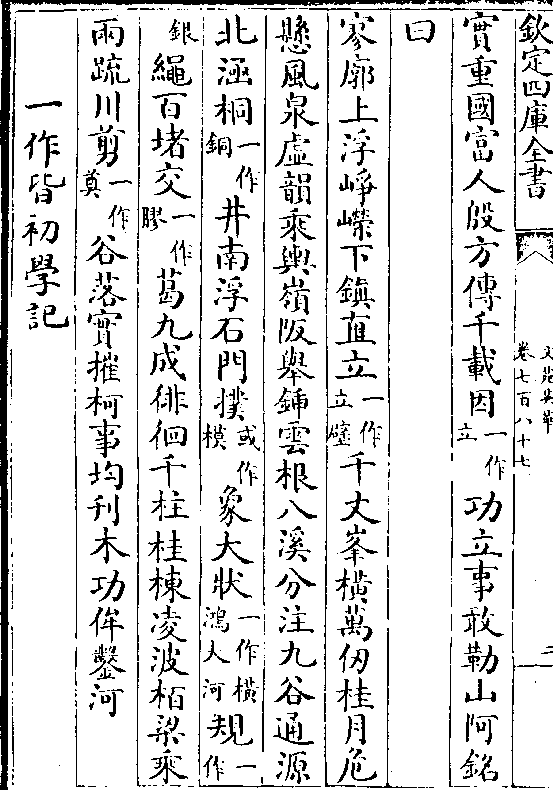 欽定四庫全書
文苑英華
卷七百八十七
二
實重國富人殷方傳千載因一作立功立事敢勒山阿銘
曰
寥廓上浮崢嶸下鎮直立一作立壁千丈峯橫萬仞桂月危
懸風泉虛韻乘輿嶺阪舉鍤雲根八溪分注九谷通源
北涵桐一作銅井南浮石門撲或作模象大狀一作橫鴻大河規一作
銀繩百堵交一作膠葛九成徘徊千柱桂棟凌波栢梁乘
雨疏川剪一作奠谷落實摧柯事均刋木功侔鑿河
一作皆初學記